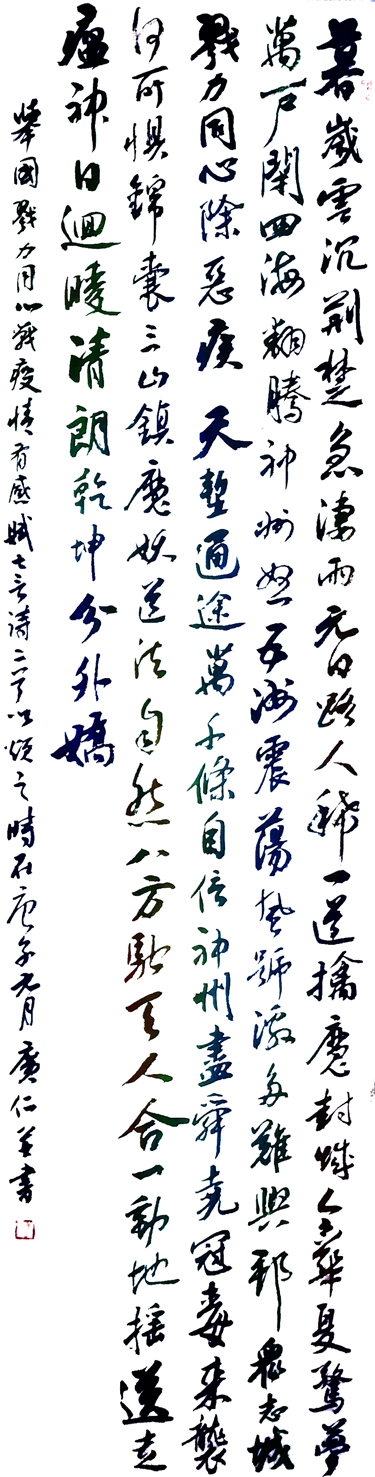 暮歲雲沉荆楚急淒雨元日路人稀一道擒魔封城令華夏驚夢
萬戶四海翻騰神州怒五洲震蕩風號激多難興邦衆志城
戮力同心除惡疾 天塹通途萬千條自信神州盡舜堯冠毒來襲
何所惧錦囊三山鎮魔妖道法自然八方馳天人合一動地搖送走
瘟神日迴暖清朗乾坤分外嬌
舉國戮力同心戰疫情有感賦七言詩二首以頌之時在庚子元月廣仁並書